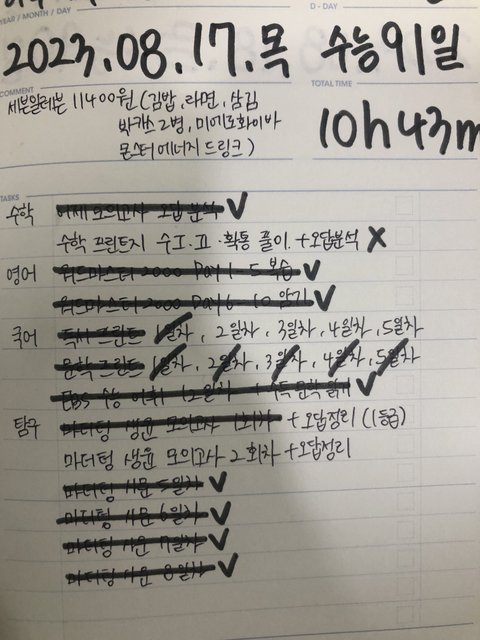 YEAR / MONTH / DAY
D - DAY
2023.08.17.목 수능91일
COMMENT
TOTAL TIME
세븐일레븐 11400원 (김밥, 라면, 삼김
박카스 2병, 미에로화이바
몬스터 에너지 드링크)
10h 43m
TASKS
수학 어제 모의고사 오답 분석 ✓
수학 프린트지 수Ⅰ·Ⅱ·확통 풀이 + 오답분석 X
영어 워드마스터 2000 Day 1-5 복습 ✓
워드마스터 2000 Day 6-10 암기 ✓
국어 독서 프린트 1일차, 2일차, 3일차, 4일차, 5일차
문학 프린트 1일차, 2일차, 3일차, 4일차, 5일차
EBS 수능 12일차 + 문학 ✓
탐구 마더텅 생윤 모의고사 1회차 + 오답정리 (1등급)
마더텅 생윤 모의고사 2회차 + 오답정리
마더텅 사문 5일차 ✓
마더텅 사문 6일차 ✓
마더텅 사문 7일차 ✓
마더텅 사문 8일차 ✓